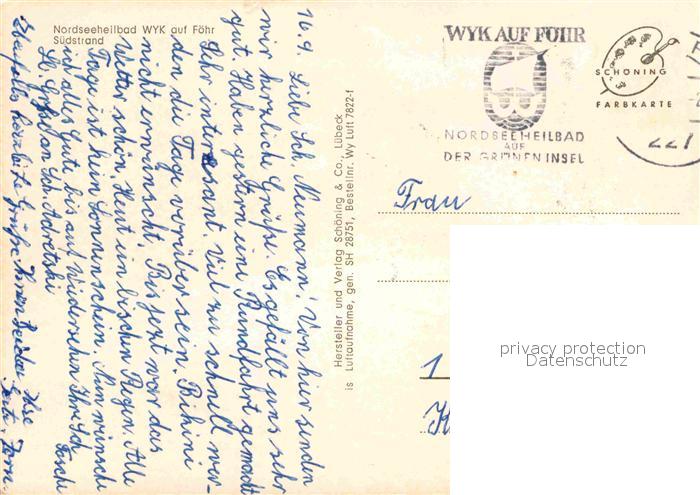 Nordseeheilbad WYK auf Föhr
Südstrand
16.9. Liebe Sch. Neumann! Von hier senden
wir herzliche Grüße. Es gefällt uns sehr
gut. Haben gestern eine Rundfahrt gemacht
Sehr interesant. Viel zu schnell wer-
den die Tage vorüber sein. Bikini
nicht erwünscht. Bis jetzt war das
Wetter schön. Heut ein bischen Regen. Alle
Tage ist kein Sonnenschein. Nun wünsche
ich alles Gute bis auf Wiedersehn Ihre Sch.
Lb. Gruß an Sch.
Ebenfalls herzliche Grüße Ihnen beiden Ilse
Hersteller und Verlag Schöning & Co., Lübeck
is Luftaufnahme, gen. SH 28751, Bestellnr. Wy Luft 7822-f
WYK AUF FÖHR
NORDSEEHEILBAD
AUF
DER GRÜNEN INSEL
SCHÖNING
FARBKARTE
227
Frau
1
privacy protection
Datenschutz